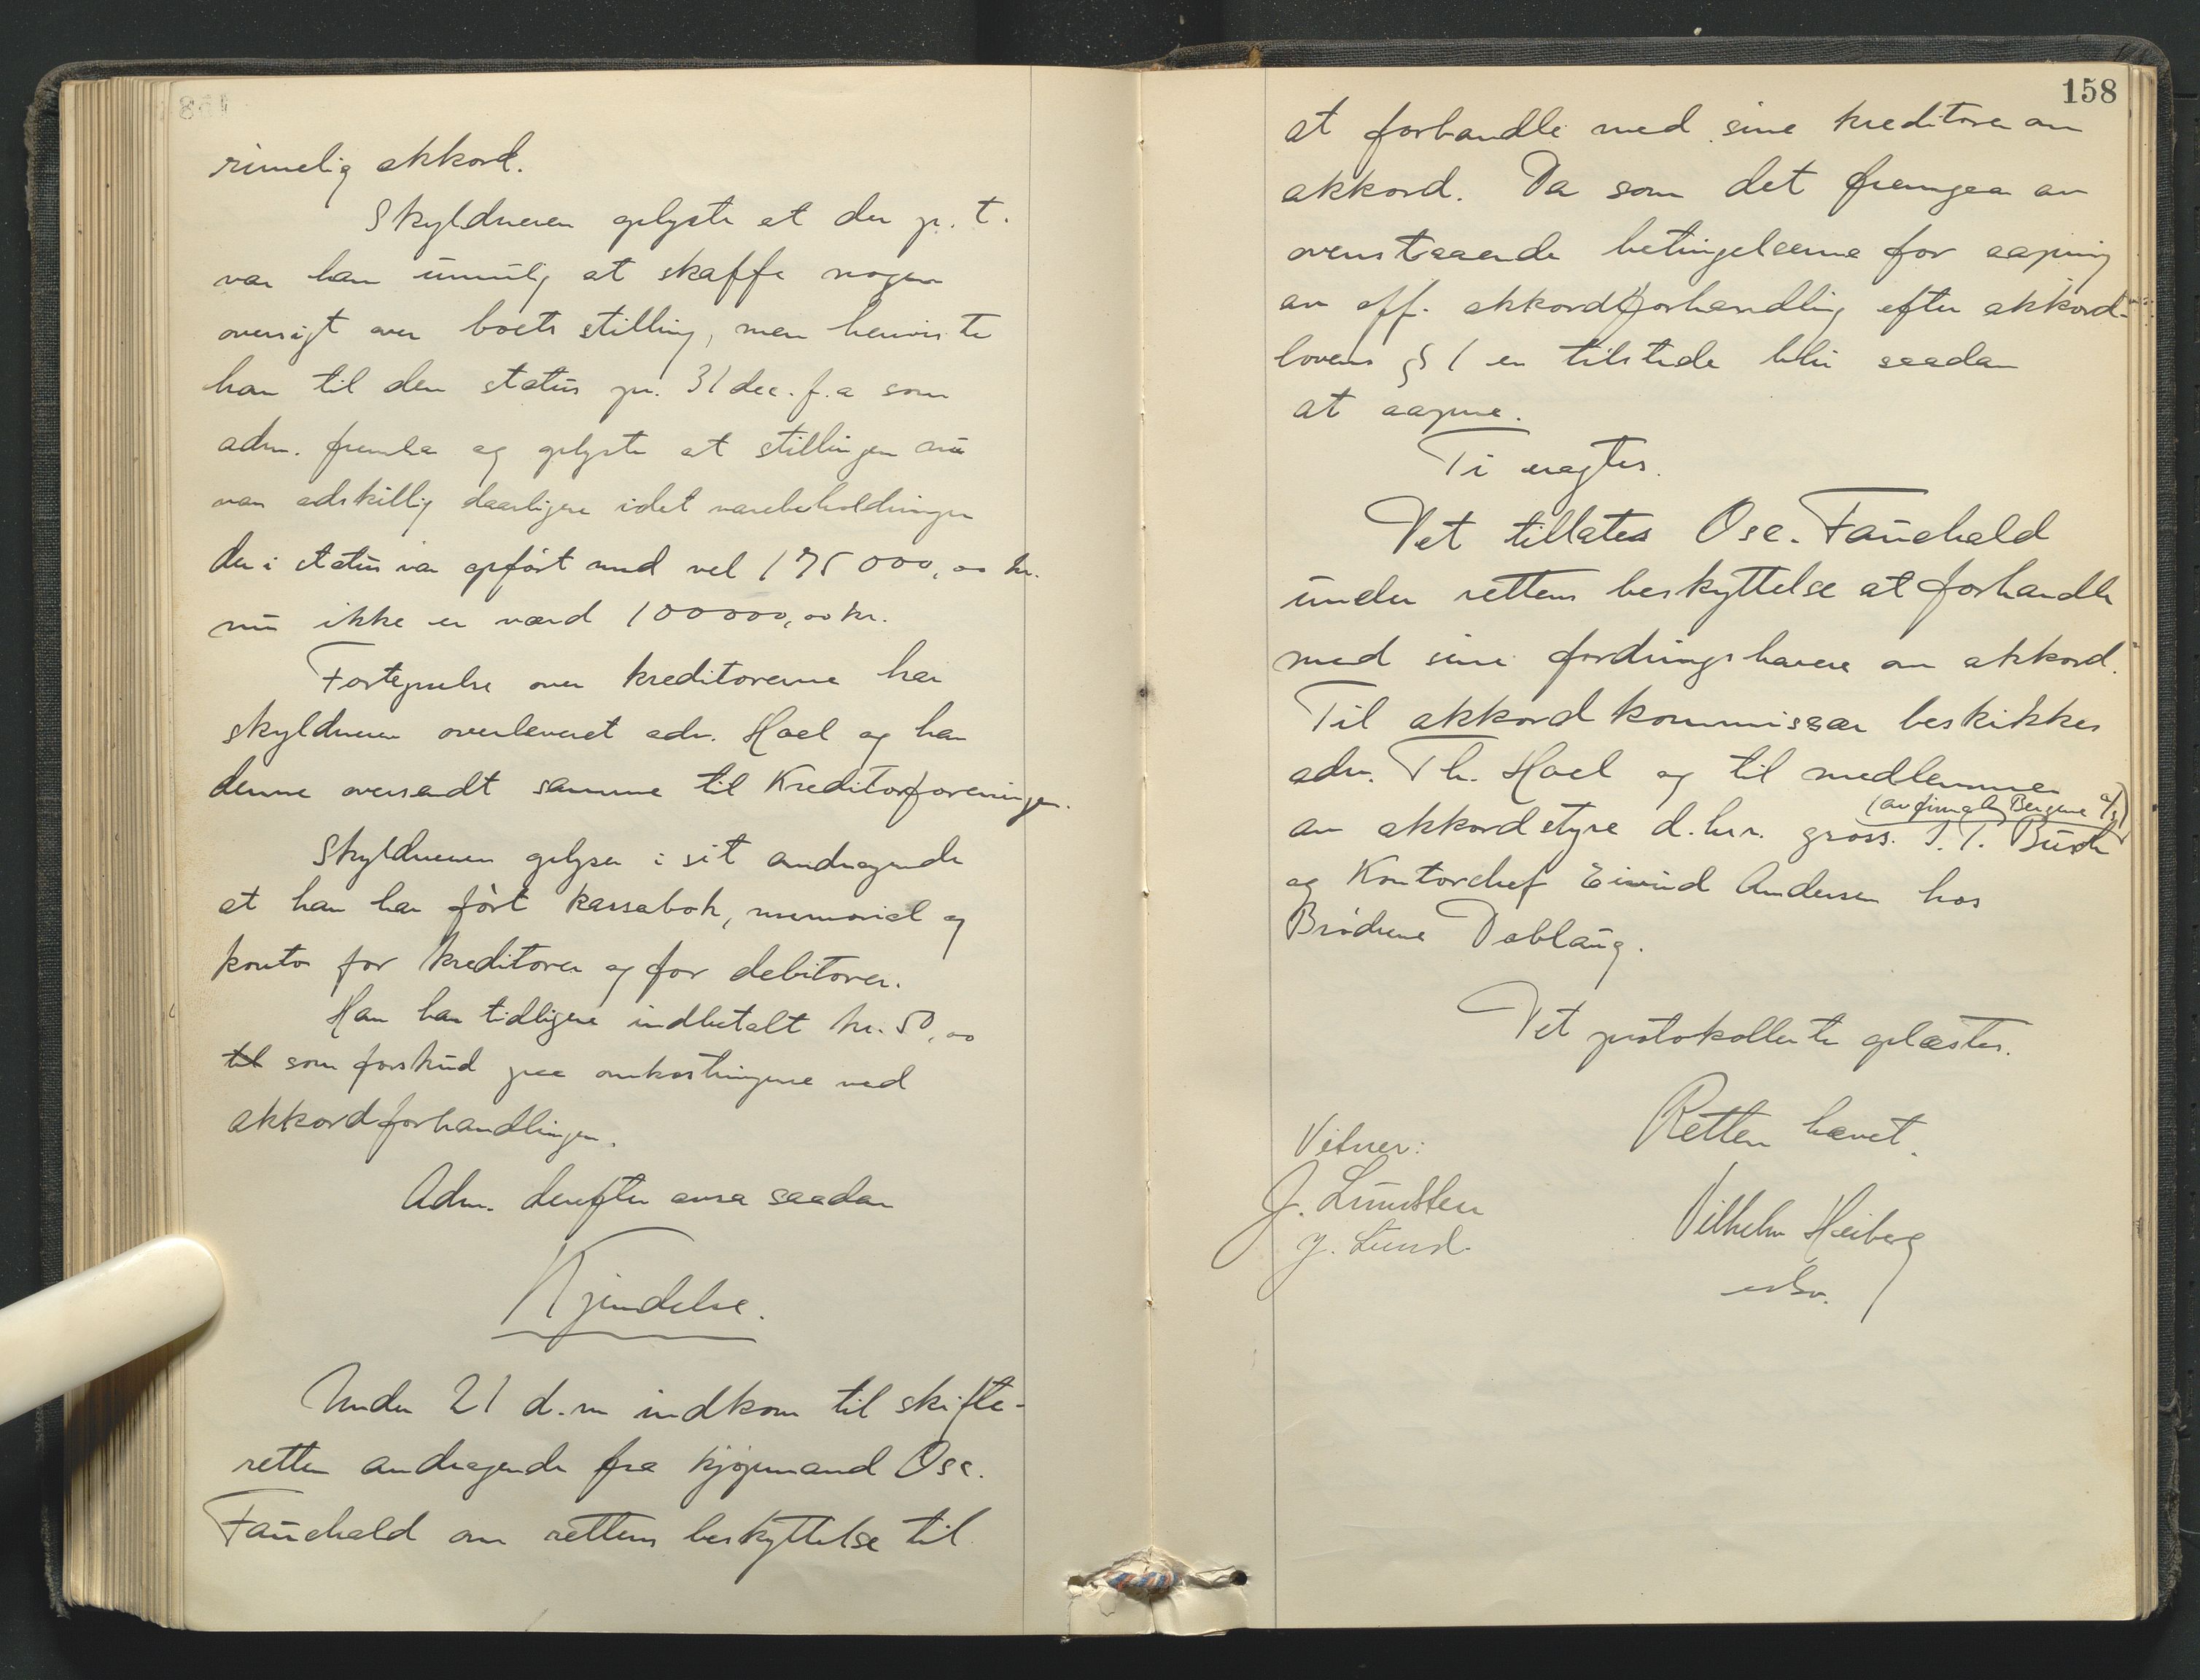 rimelig akkord.
Skyldneren oplyste at der p. t.
var ham umulig at skaffe nogen
oversigt over boets stilling, men henviste
han til den status pr. 31 dec. f. a som
adm. fremla og oplyste at stillingen nu
var adskillig daarligere idet varebeholdningen
der i status var opført med vel 175 000,00 kr.
nu ikke er værd 100000,00 kr.
Fortegnelse over kreditorerne har
skyldneren overleveret adv. Hoel og har
denne oversendt samme til Kreditorforeningen.
Skyldneren oplyser i sit andragende
at han har ført kassabok, memorial og
konto for kreditorer og for debitorer.
Han har tidligere indbetalt kr. 50,00
til som forskud paa omkostningene ved
akkordforhandlingen.
Adm. derefter avsa saadan
Kjendelse.
Under 21 d. m indkom til skifte-
retten andragende fra kjøpmand Osc.
Fauchald om rettens beskyttelse til
158
at forhandle med sine kreditorer om
akkord. Da som det fremgaar av
ovenstaaende betingelserne for aapning
av off. akkordforhandling efter akkord-
lovens § 1 er tilstede blir saadan
at aapne.
Ti eragtes.
Det tillates Osc. Fauchald
under rettens beskyttelse at forhandle
med sine fordringshavere om akkord.
Til akkordkommissær beskikkes
adv. Th. Hoel og til medlemmer
(av firmaet Bergene a/s)
av akkordstyre d.hrr. gross. T. Busch
og Kontorchef Eivind Andersen hos
Brødrene Doblaug.
Det protokollerte oplæstes.
Retten hævet.
Vitner:
J. Lundsten
J. Lund.
Vilhelm Heiberg